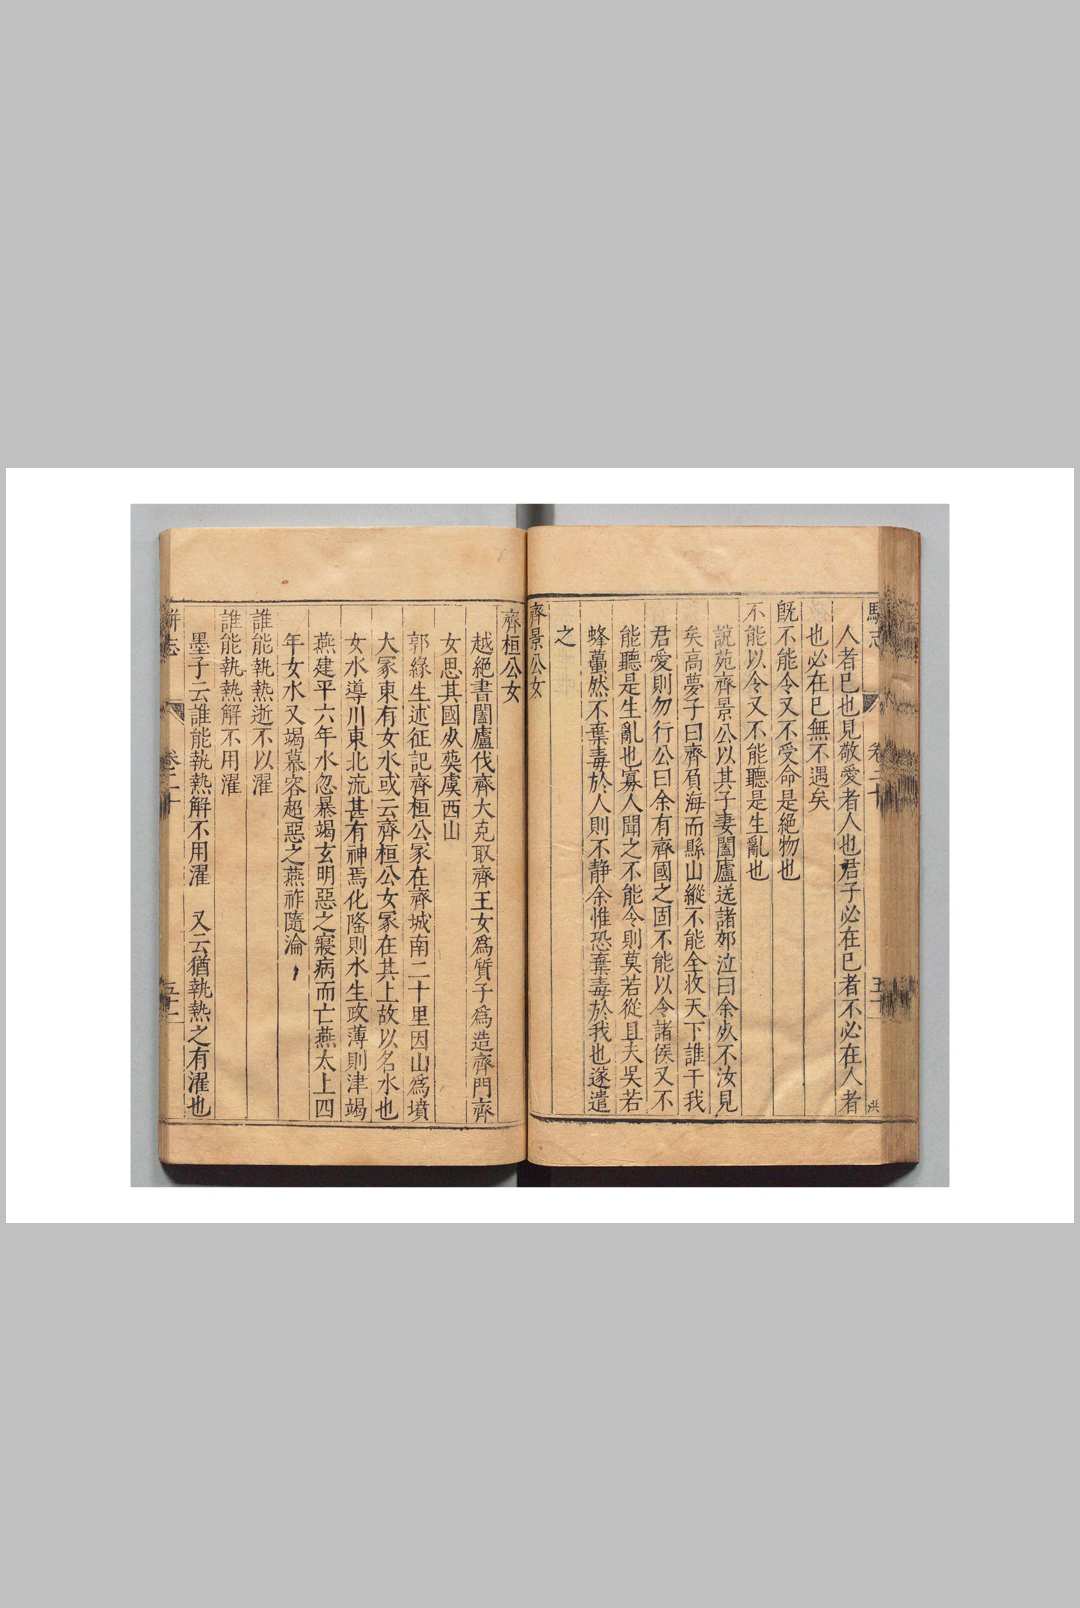 駢志 卷二十 五十一
人者已也見敬愛者人也君子必在已者不必在人者
也必在已無不遇矣
旣不能令又不受命是絕物也
不能以令又不能聽是生亂也
說苑齊景公以其子妻闔廬送諸郊泣曰余歿不汝見
矣高夢子曰齊負海而縣山縱不能全收天下誰干我
君愛則勿行公曰余有齊國之固不能以令諸侯又不
能聽是生亂也寡人聞之不能令則莫若從且夫吳若
蜂蠆然不棄毒於人則不静余惟恐棄毒於我也遂遣
之
齊景公女
齊桓公女
越絕書闔廬伐齊大克取齊王女爲質子爲造齊門齊
女思其國歿葬虞西山
郭緣生述征記齊桓公冢在齊城南二十里因山爲墳
大冢東有女水或云齊桓公女冢在其上故以名水也
女水導川東北流甚有神焉化隆則水生政薄則津竭
燕建平六年水忽暴竭玄明惡之寢病而亡燕太上四
年女水又竭慕容超惡之燕祚隨淪
誰能執熱逝不以濯
誰能執熱解不用濯
墨子云誰能執熱解不用濯 又云猶執熱之有濯也
駢志 卷二十 五十二